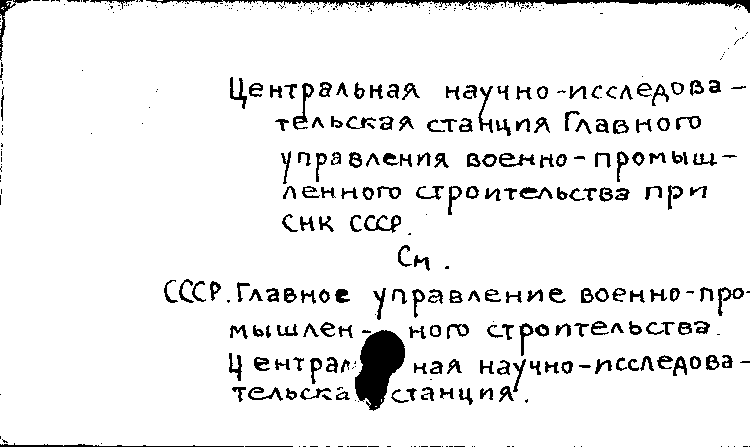 Центральная научно-исследова-
тельская станция Главного
управления военно-промыш-
ленного строительства при
СНК СССР.
См.
СССР. Главное управление военно-про-
мышлен-ного строительства.
Централ ная научно-исследова-
тельска станция.